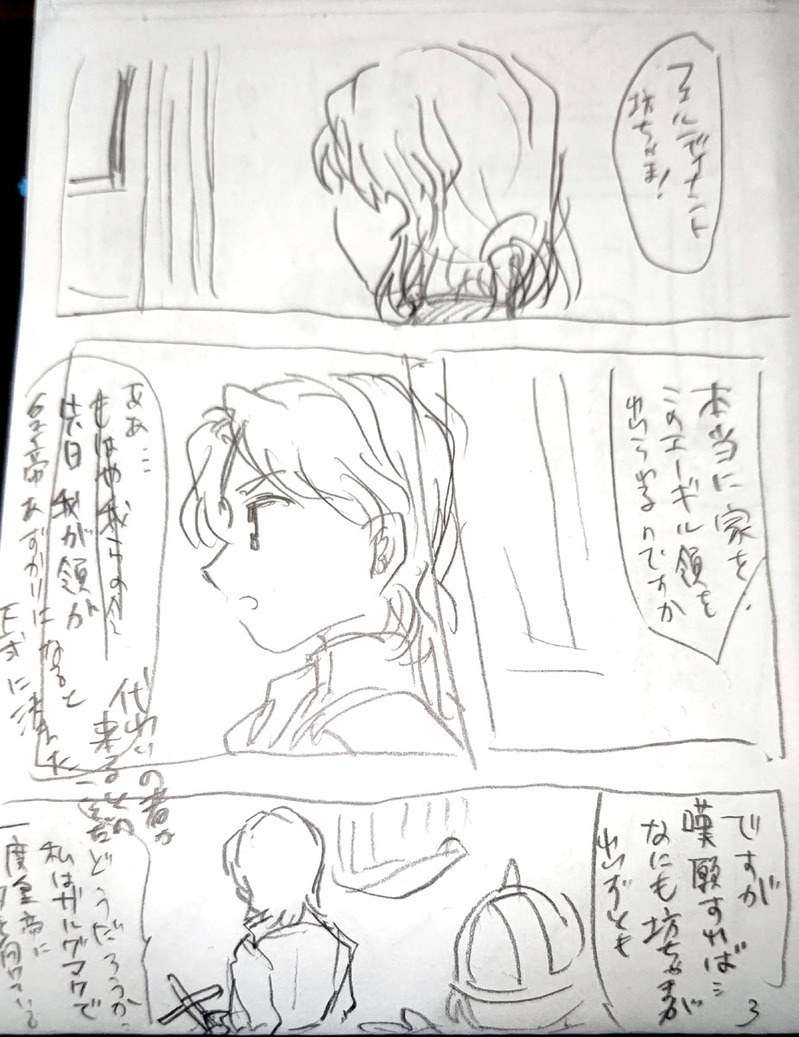 フェルディナント
坊ちゃま!
本当に家を、
このエーギル領を
出られるのですか
ああ…
もはや我らの
先日我が領が
帝あずかりになると
正式に決った
代わりの者が
来るとの
ですが
嘆願すれば…
なにも坊ちゃまが
出ずとも
どうだろうか、
私はガルグマクで
一度皇帝に
を向けている
3